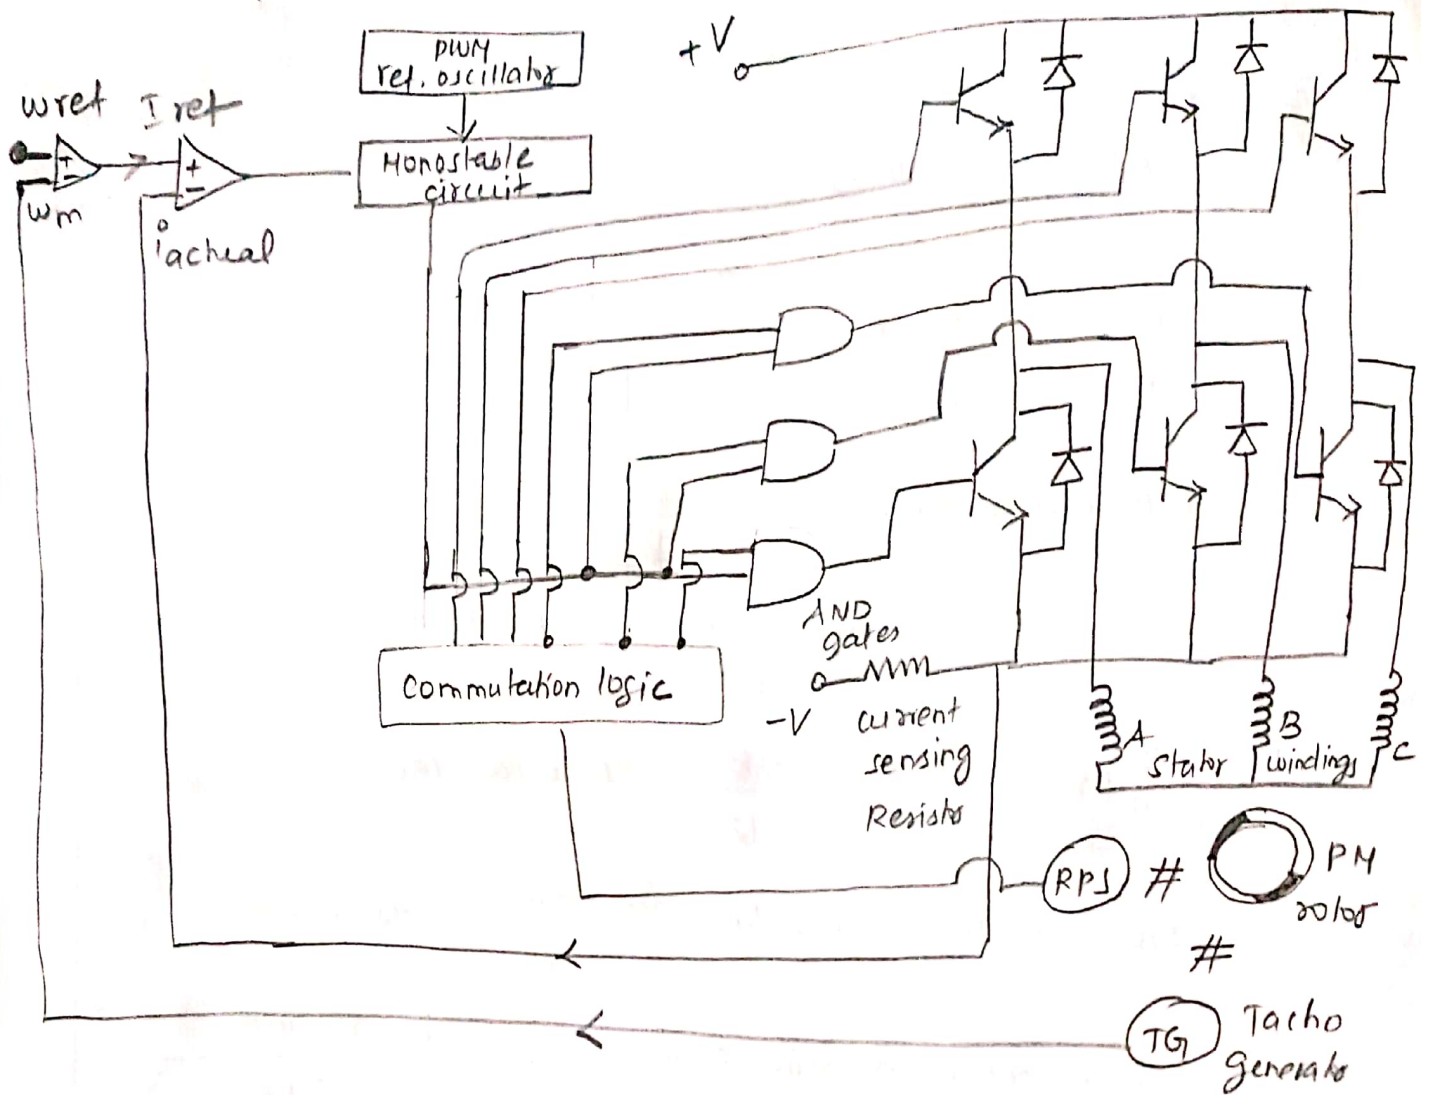 PWM
ref. oscillator
+V
wref
I ref
+
−
wm
+
−
Monostable
circuit
iactual
AND
gates
commutation logic
-V
current
sensing
Resistor
A
B
C
Stator windings
RPS
#
PM
rotor
#
TG
Tacho
generator